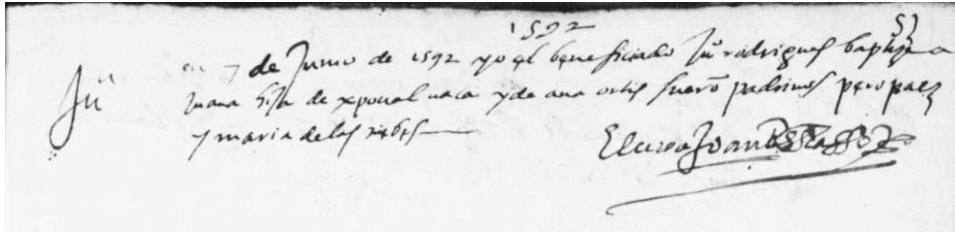 1592
en 7 de Junio de 1592 yo el beneficiado Ju rodrigues baptize a
Juana hija de xpoual uaca y de ana ortis fuero padrinos pero paez
y maria de las nebes
Ju
El cura Joan